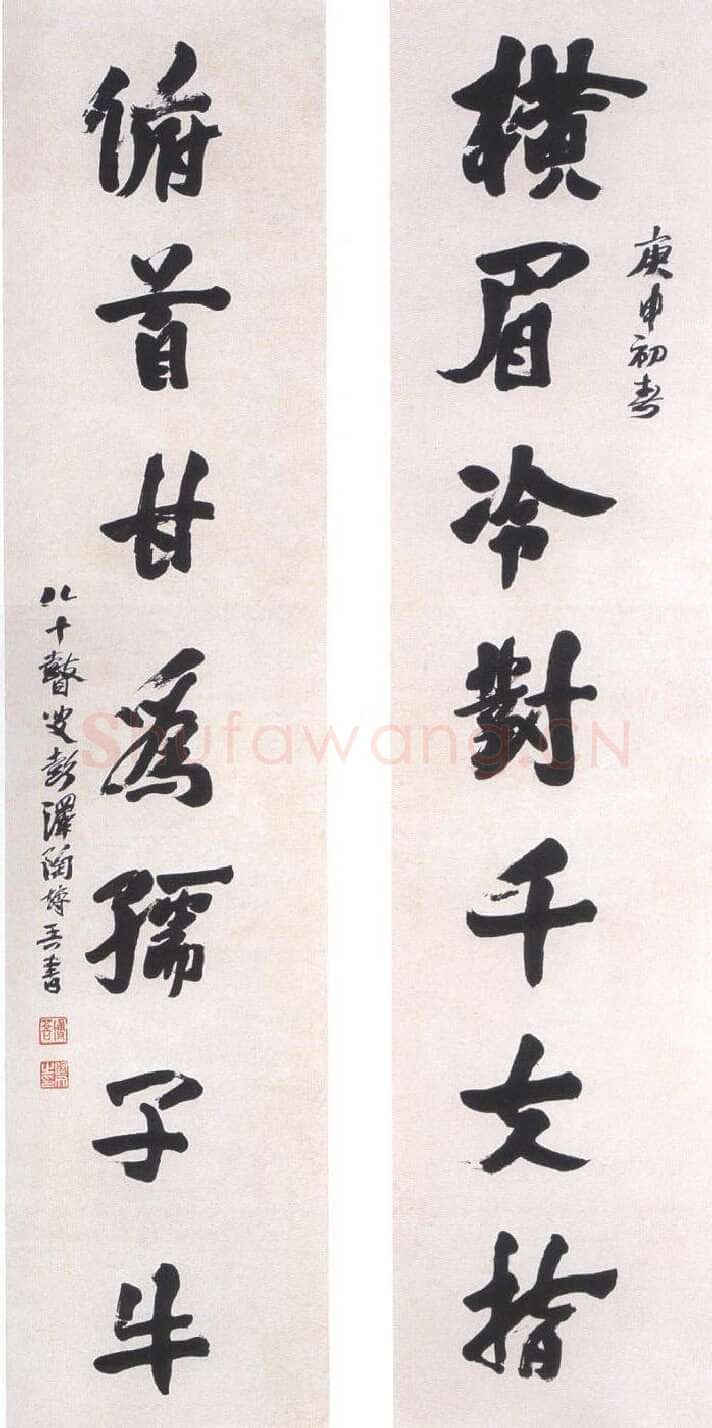 橫眉冷對千夫指
庚申初春
俯首甘爲孺子牛
八十瞽叟彭澤陶博吾書
Shufawang.CN